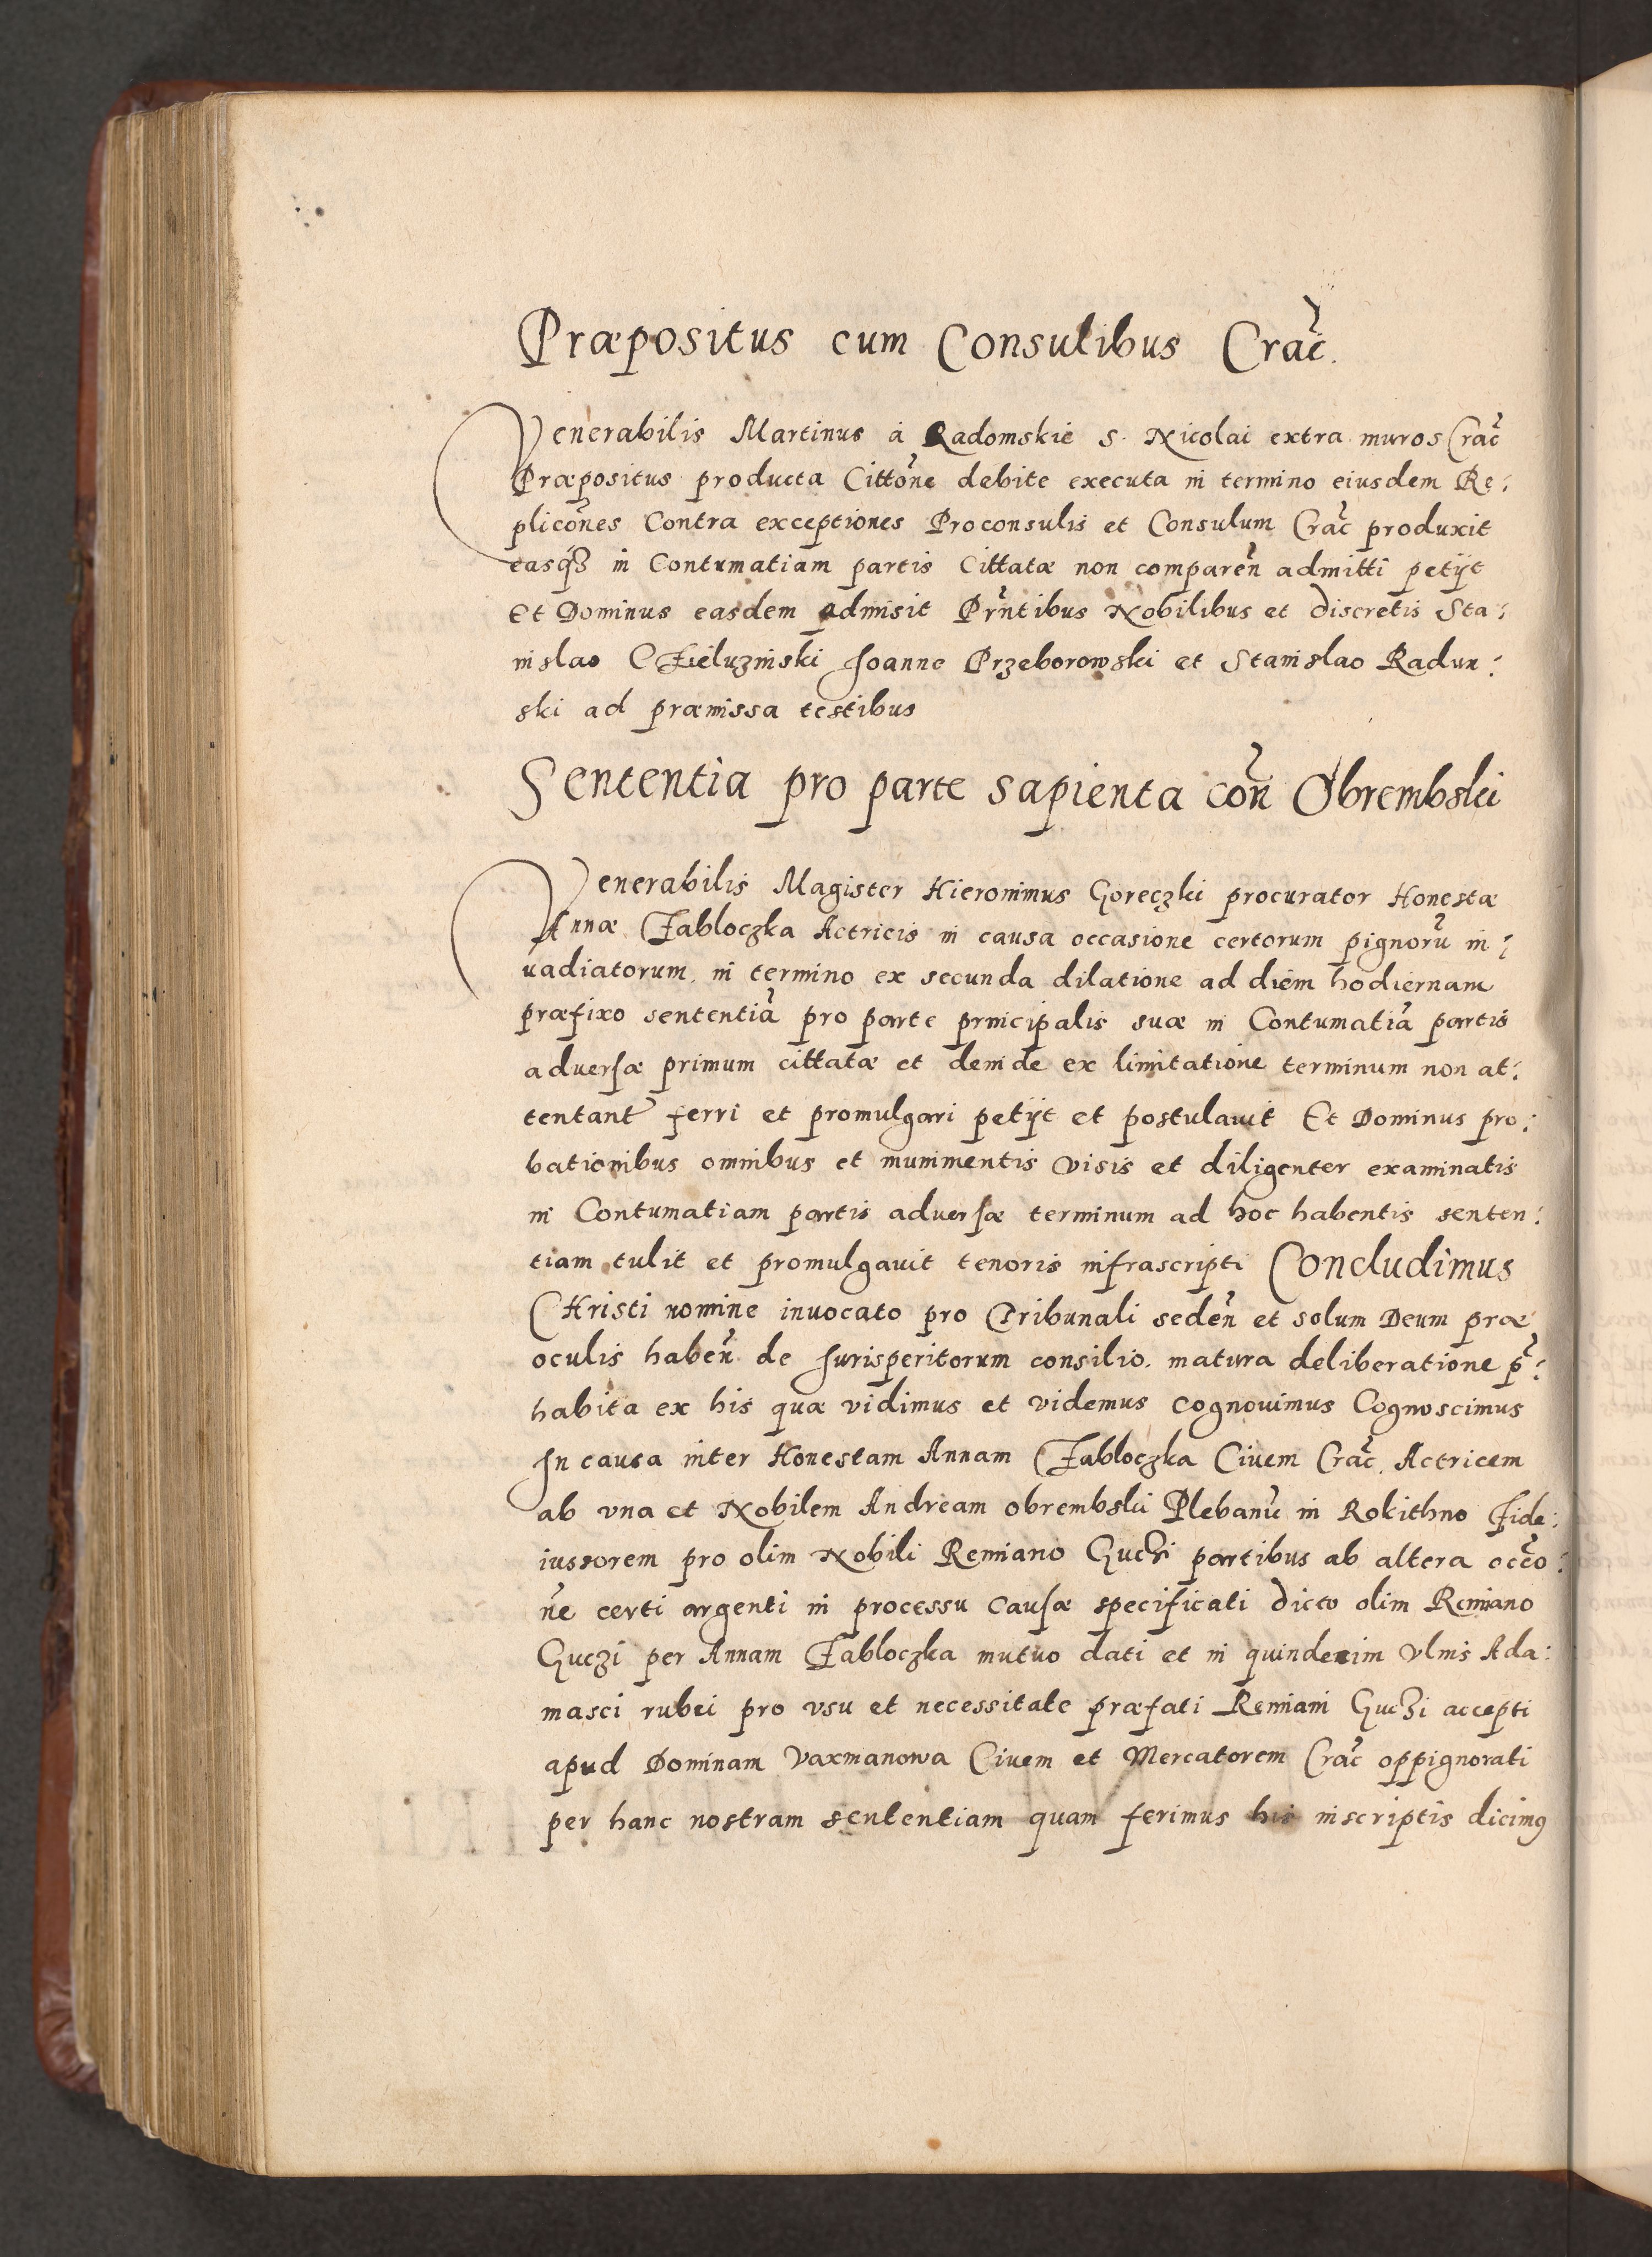 Præpositus cum Consulibus Crac̃.
Venerabilis Martinus á Radomskie S. Nicolai extra muros Crac̃
Præpositus producta Cittoñe debite executa in termino eiusdem Re:
plicoñes Contra exceptiones Proconsulis et Consulum Crac̃ produxit
easq́ꝫ in Contumatiam partis Cittatæ non compareñ admitti petijt
Et Dominus easdem admisit Prñtibus Nobilibus et discretis Sta:
nislao Chieluzinski Joanne Przeborowski et Stanislao Radun:
ski ad præmissa testibus
Sententia pro parte sapienta coñ Obrembski
Venerabilis Magister Hieronimus Goreczki procurator Honestæ
Annæ Jabloczka Actricis in causa occasione certorum pignorũ in:
uadiatorum in termino ex secunda dilatione ad diem hodiernam
præfixo sententiã pro parte principalis suæ in Contumatiã partis
aduersæ primum cittatæ et deinde ex limitatione terminum non at:
tentant̃ ferri et promulgari petijt et postulauit Et Dominus pro:
bationibus omnibus et munimentis visis et diligenter examinatis
in Contumatiam partis aduersæ terminum ad hoc habentis senten:
tiam tulit et promulgauit tenoris infrascripti Concludimus
Christi nomine inuocato pro Tribunali sedeñ et solum Deum præ
oculis habeñ de Jurisperitorum consilio matura deliberatione p̃:
habita ex his quæ vidimus et videmus cognouimus Cognoscimus
In causa inter Honestam Annam Jabloczka Ciuem Crac̃. Actricem
ab vna et Nobilem Andream obrembski Plebanũ in Rokithno Fide:
iussorem pro olim Nobili Remiano Guczi partibus ab altera occõ:
ñe certi argenti in processu causæ specificati dicto olim Remiano
Guczi per Annam Jabloczka mutuo dati et in quindecim vlnis Ada:
masci rubei pro vsu et necessitate præfati Remiani Guczi accepti
apud Dominam Vaxmanowa Ciuem et Mercatorem Crac̃ oppignorati
per hanc nostram sententiam quam ferimus his inscriptis dicimꝰ